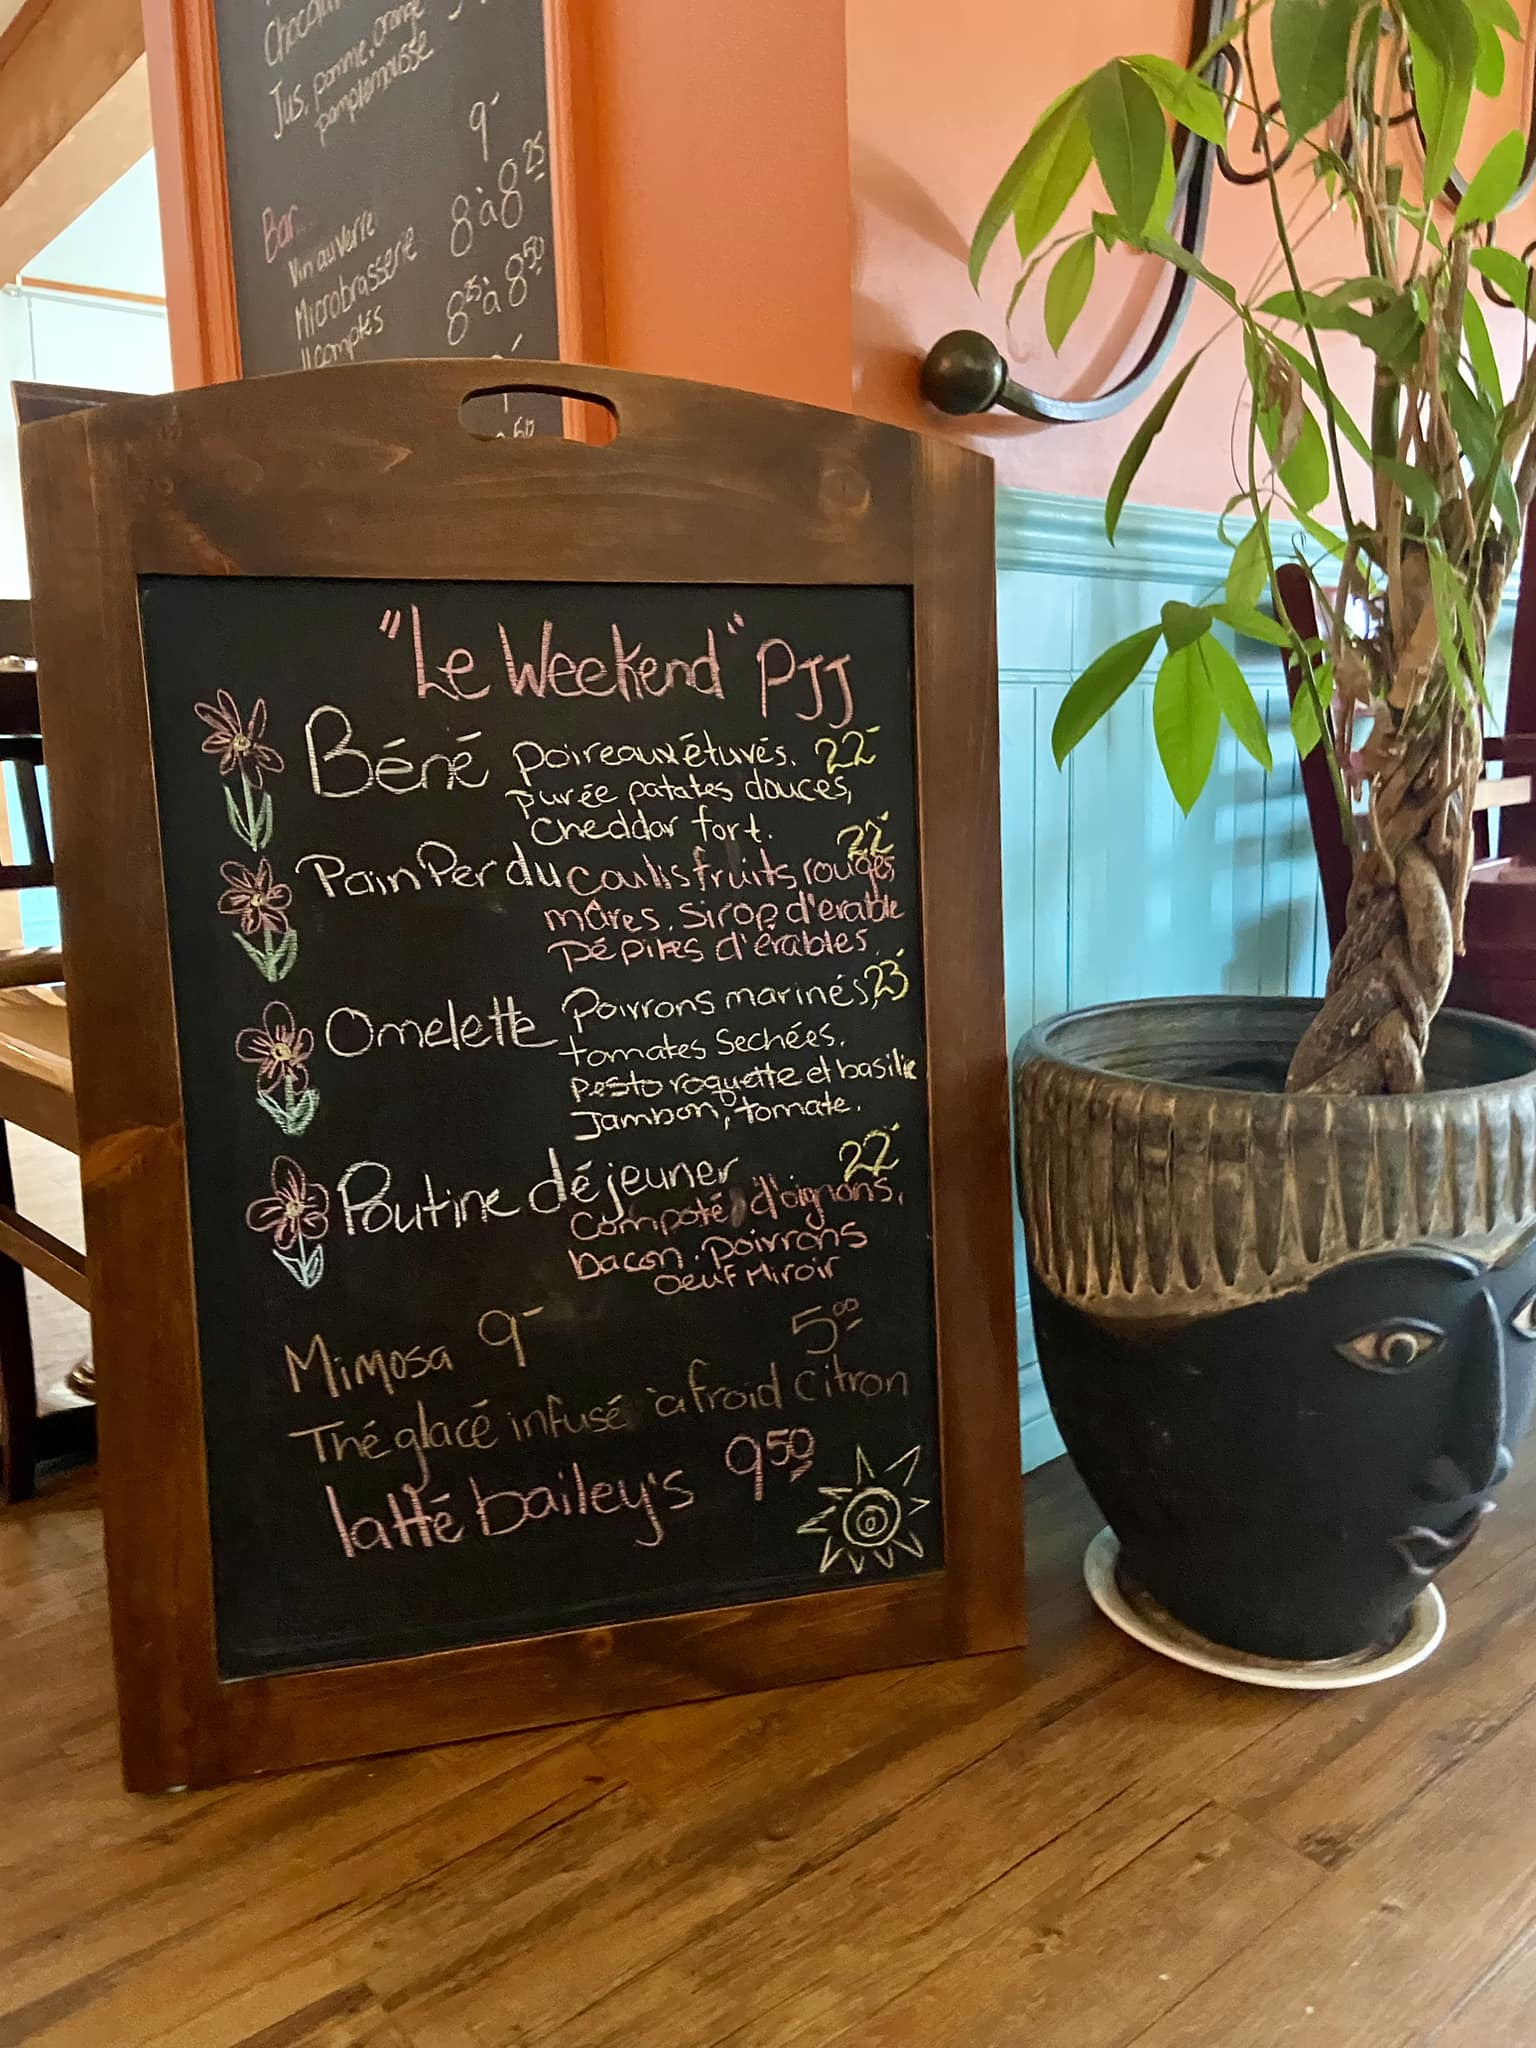 Jus, pomme, orange
pamplemousse
Bar
Vin au verre 9-
Microbrasserie 8 à 8 25
8 25 à 8 50
"Le Weekend" PJJ
Béné poireaux étuvés. 22-
purée patates douces,
Cheddar fort.
Pain Perdu coulis fruits rouges 22-
mûres. Sirop d'érable
Pépites d'érables
Omelette Poivrons marinés, 23-
tomates Sechées.
pesto roquette et basilic
Jambon, tomate.
Poutine déjeuner 22-
Compoté d'oignons,
bacon. poivrons
oeuf Miroir
Mimosa 9- 5 00
Thé glacé infusé à froid citron
latté bailey's 9 50